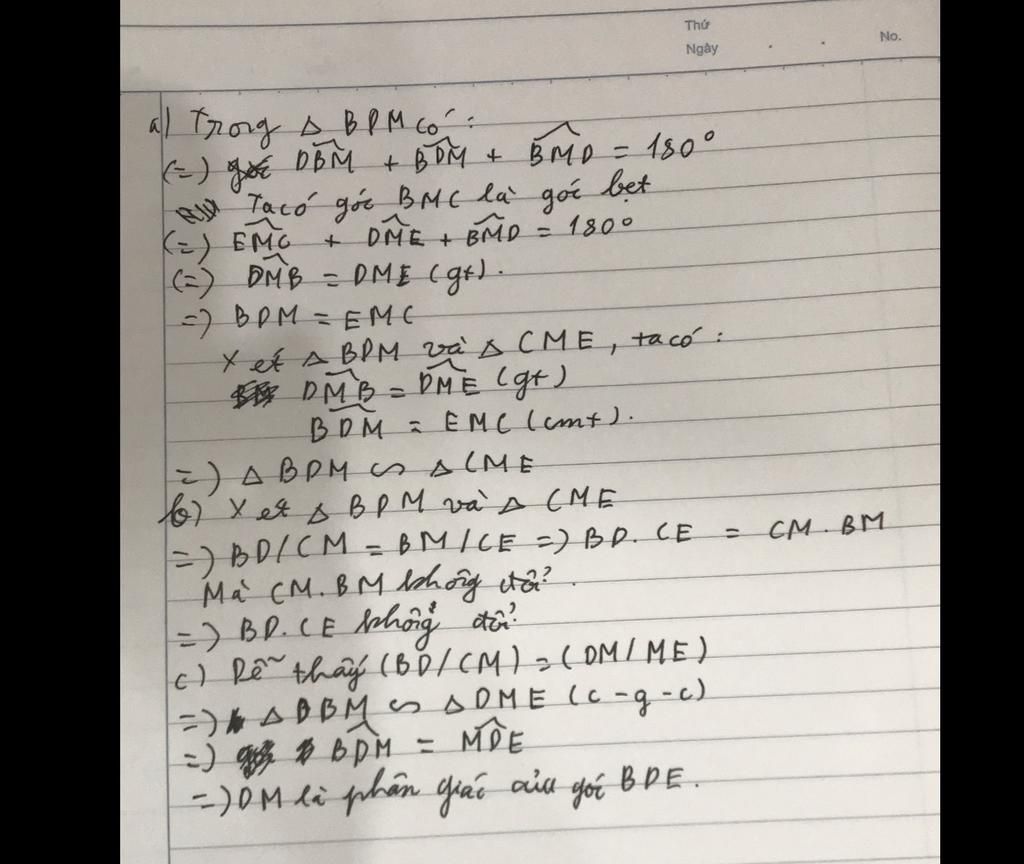 Thứ
Ngày . .
No.
a) Trong △ BDM có:
(=) DBM + BDM + BMD = 180°
Ta có góc BMC là góc bẹt
(=) EMC + DME + BMD = 180°
(=) DMB = DME (gt).
=) BDM = EMC
Xét △ BDM và △ CME, ta có:
DMB = DME (gt)
BDM = EMC (cmt).
=) △ BDM ∽ △ CME
b) Xét △ BDM và △ CME
=) BD/CM = BM/CE =) BD. CE = CM. BM
Mà CM. BM không đổi.
=) BD. CE không đổi
c) Dễ thấy (BD/CM) = (DM/ME)
=) △ DBM ∽ △ DME (c-g-c)
=) BDM = MDE
=) DM là phân giác của góc BDE.